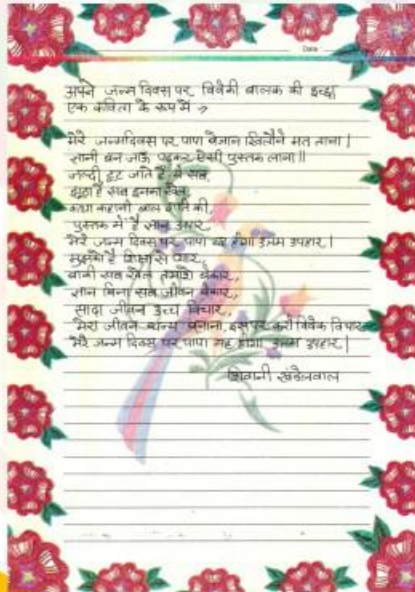 Date
अपने जन्म दिवस पर विवेकी बालक की इच्छा
एक कविता के रूप में →
मेरे जन्मदिवस पर पापा बेजान खिलौने मत लाना |
ज्ञानी बन जाऊँ पढ़कर ऐसी पुस्तक लाना ||
जल्दी टूट जाते हैं ये सब,
झूठा है सब इनका खेल,
कथा कहानी बाल की,
पुस्तक में है ज्ञान अपार,
मेरे जन्म दिवस पर पापा यह होगा उत्तम उपहार |
मुझको है शिक्षा से प्यार,
बाकी सब खेल तमाशे बेकार,
ज्ञान बिना सब जीवन बेकार,
सादा जीवन उच्च विचार,
मेरा जीवन धन्य बनाना, इस पर करो विवेक विचार
मेरे जन्म दिवस पर पापा यह होगा उत्तम उपहार |
शिवानी खंडेलवाल